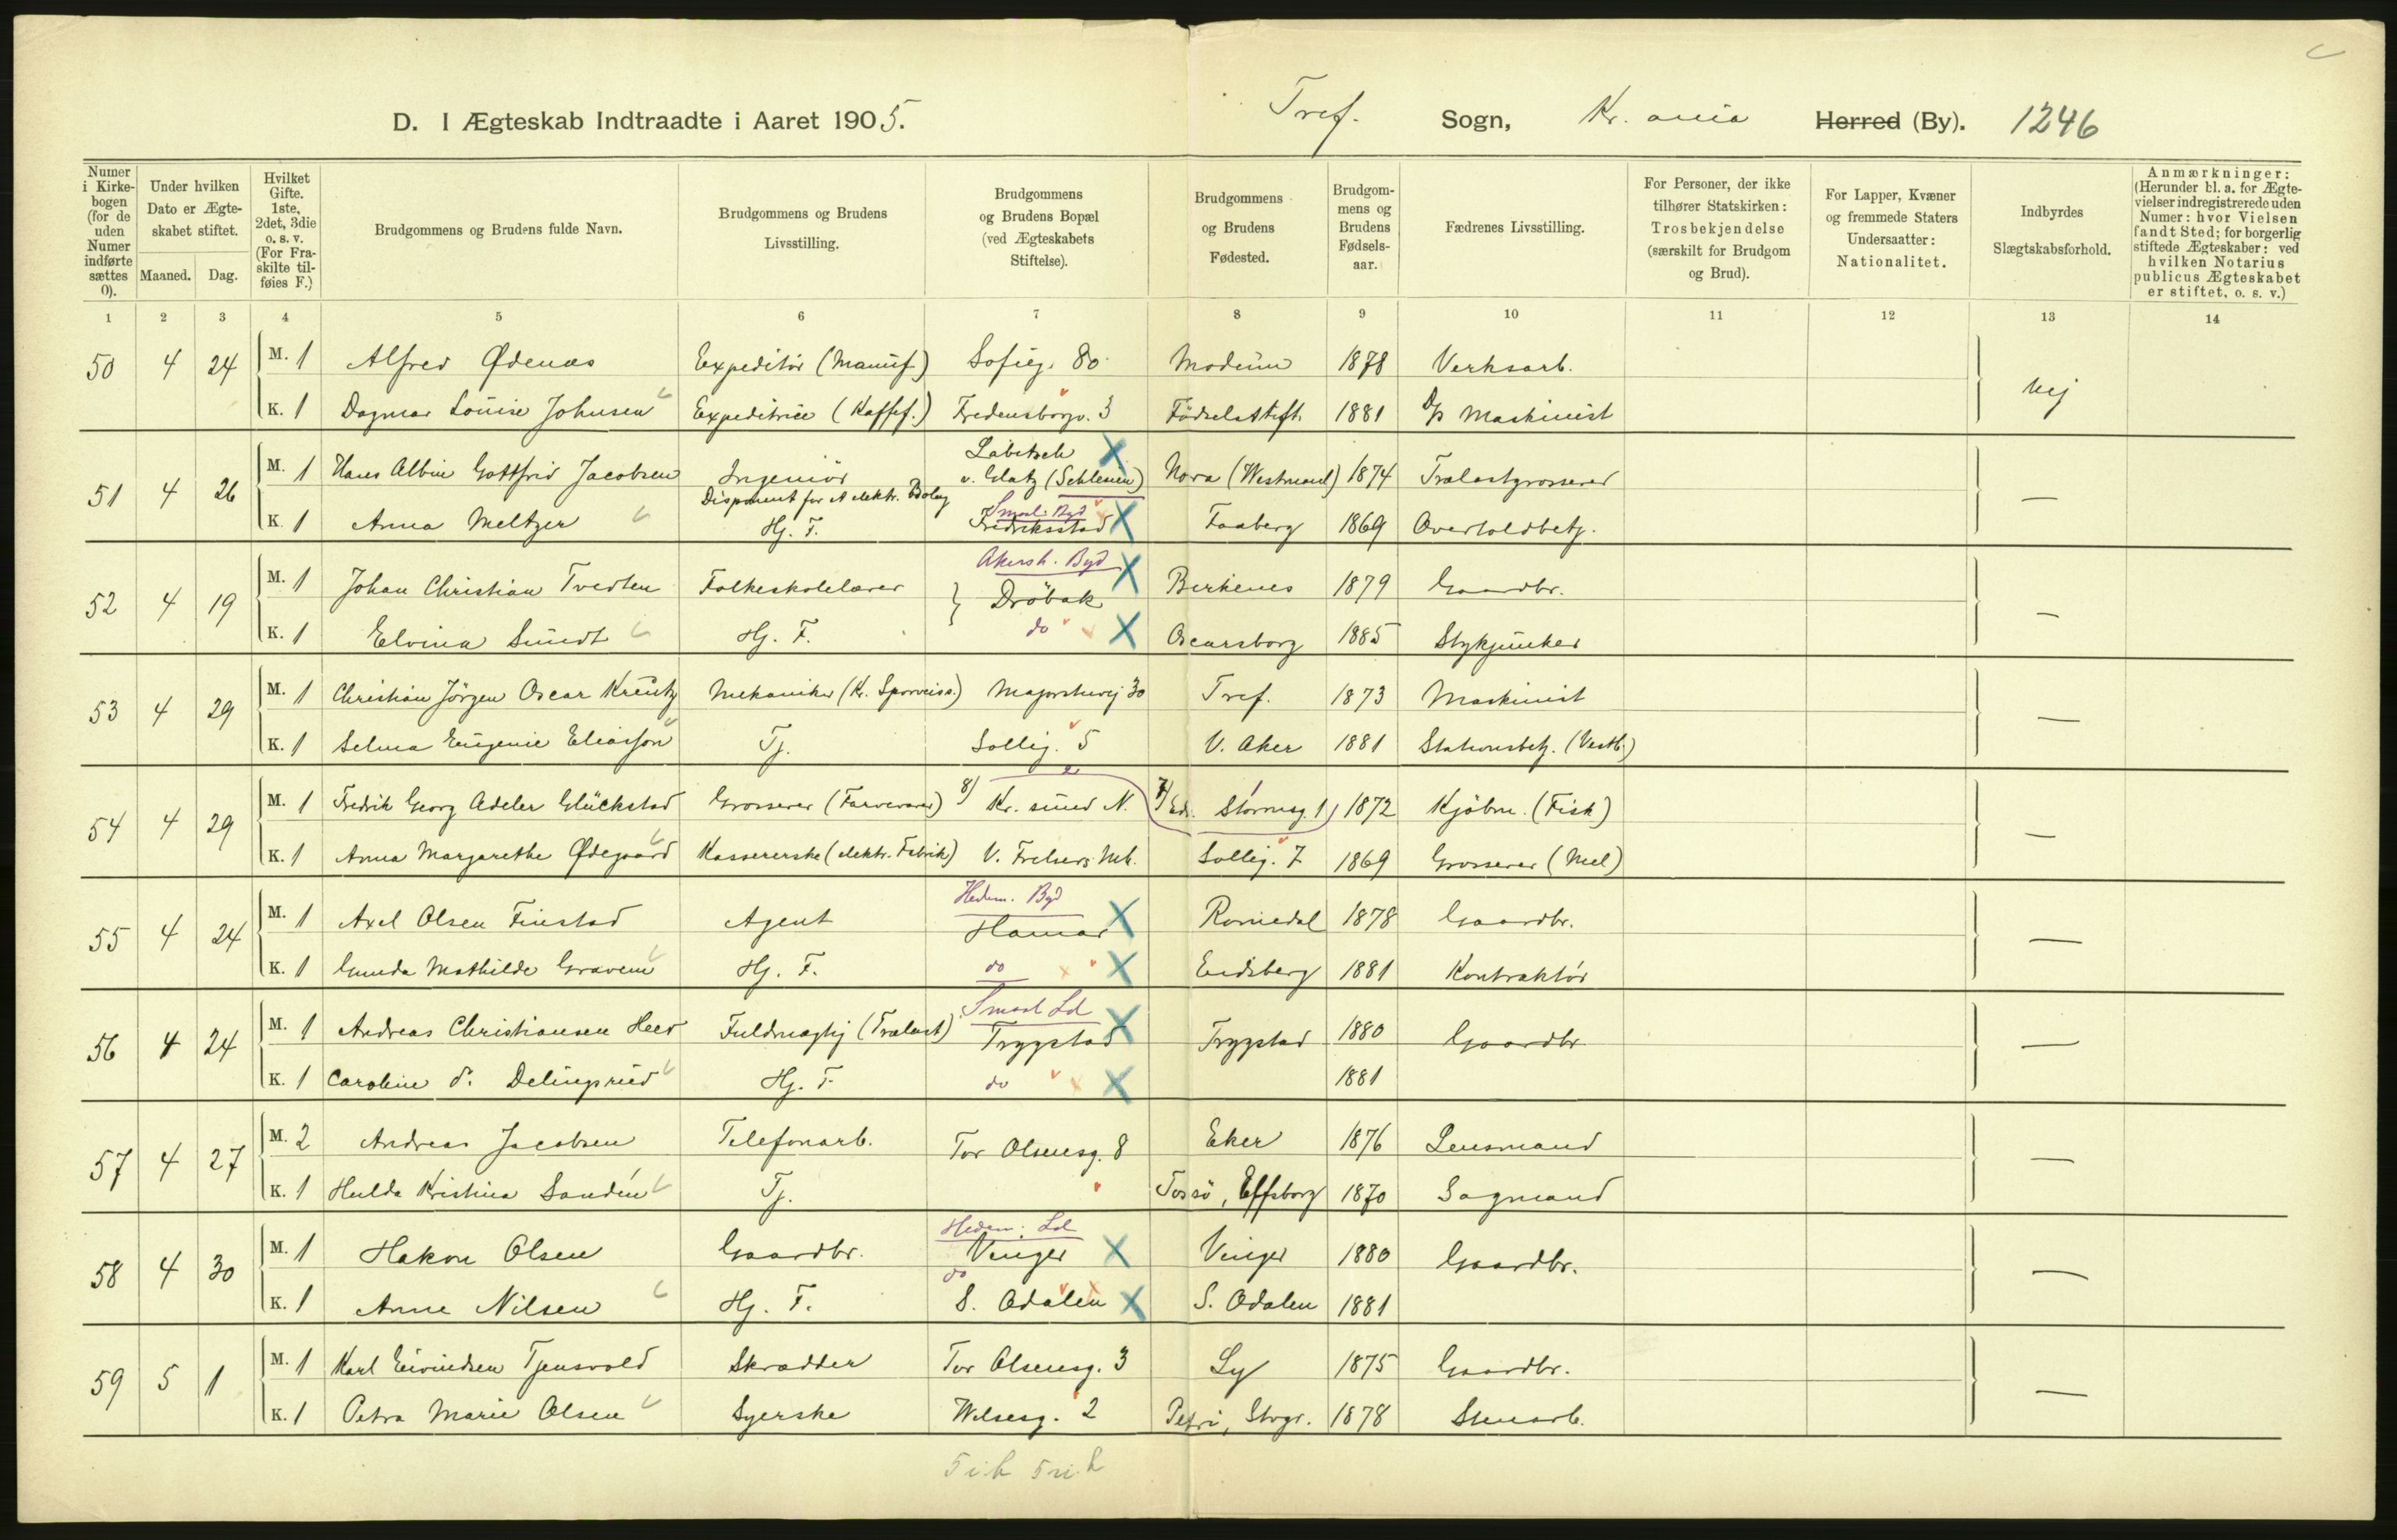 D. I Ægteskab Indtraadte i Aaret 1905. Tref. Sogn, Kr.ania Herred (By). 1246
Numer i Kirkebogen (for de uden Numer indførte sættes 0).
Under hvilken Dato er Ægteskabet stiftet.
Maaned. Dag.
Hvilket Gifte. 1ste, 2det, 3die o. s. v. (For Fraskilte tilføies F.)
Brudgommens og Brudens fulde Navn.
Brudgommens og Brudens Livsstilling.
Brudgommens og Brudens Bopæl (ved Ægteskabets Stiftelse).
Brudgommens og Brudens Fødested.
Brudgommens og Brudens Fødselsaar.
Fædrenes Livsstilling.
For Personer, der ikke tilhører Statskirken: Trosbekjendelse (særskilt for Brudgom og Brud).
For Lapper, Kvæner og fremmede Staters Undersaatter: Nationalitet.
Indbyrdes Slægtskabsforhold.
Anmærkninger: (Herunder bl. a. for Ægtevielser indregistrerede uden Numer: hvor Vielsen fandt Sted; for borgerlig stiftede Ægteskaber: ved hvilken Notarius publicus Ægteskabet er stiftet, o. s. v.)
1 2 3 4 5 6 7 8 9 10 11 12 13 14
50 4 24 M. 1 Alfred Ødenæs Expeditör (Manuf.) Sofieg. 80 Modum 1878 Verksarb. Nej
K. 1 Dagmar Louise Johnsen Expeditrice (Kaffef.) Fredensborgv. 3 Födselsstift. 1881 Maskinist
51 4 26 M. 1 Hans Albin Gottfrid Jacobsen Ingeniör Labitsch v. Glatz (Schlesien) Nora (Westmanl) 1874 Trælastgrosserer —
Disponent for A elektr. Bolag
K. 1 Anna Meltzer Hj. F. Smaal. Byd Fredriksstad Faaberg 1869 Overtoldbetj.
52 4 19 M. 1 Johan Christian Tvedten Folkeskolelærer Akersh. Byd Dröbak Birkenes 1879 Gaardbr. —
K. 1 Elvina Sundt Hj. F. do Oscarsborg 1885 Stykjunker
53 4 29 M. 1 Christian Jörgen Oscar Kreutz Mekaniker (K. Sporveiss.) Majorstuvej 30 Tref. 1873 Maskinist —
K. 1 Selma Eugenie Eliasson Tj. Sollig. 5 V. Aker 1881 Stationsbetj. (Vestb.)
54 4 29 M. 1 Fredrik Georg Adeler Glückstad Grosserer (Farvevarer) 8) Kr. sund N. 7) Edv. Stormsg. 1 1872 Kjöbm. (Fisk) —
K. 1 Anna Margarethe Ødegaard Kassererske (elektr. Fabrik) V. Frelsers Mh. Sollig. 7 1869 Grosserer (Mel)
55 4 24 M. 1 Axel Olsen Finstad Agent Hedem. Byd Hamar Romedal 1878 Gaardbr. —
K. 1 Gunda Mathilde Gravem Hj. F. do Eidsberg 1881 Kontraktör
56 4 24 M. 1 Andreas Christiansen Heer Fuldmægtig (Trælast) Smaal Ld Trygstad Trygstad 1880 Gaardbr —
K. 1 Caroline d. Delingsrud Hj. F. do 1881
57 4 27 M. 2 Andreas Jacobsen Telefonarb. Tor Olsensg. 8 Eker 1876 Lensmand —
K. 1 Hulda Kristina Sandén Tj. Tossö, Elfsborg 1870 Sagmand
58 4 30 M. 1 Hakon Olsen Gaardbr. Hedem. Ld Vinger Vinger 1880 Gaardbr. —
K. 1 Anne Nilsen Hj. F. do S. Odalen S. Odalen 1881
59 5 1 M. 1 Karl Eivindsen Tjensvold Skrædder Tor Olsensg. 3 Ly 1875 Gaardbr. —
K. 1 Petra Marie Olsen Syerske Wilsesg. 2 Petri, Stvgr. 1878 Stenarb.